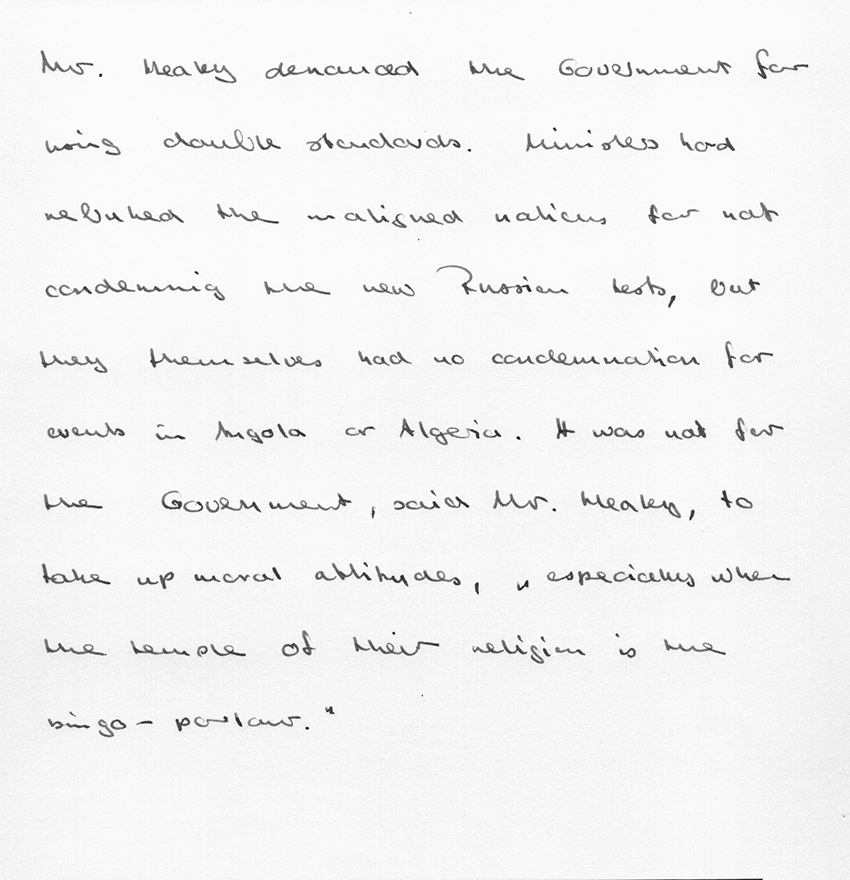 Mr. Healey denounced the Government for
using double standards. Ministers had
rebuked the unaligned nations for not
condemning the new Russian tests, but
they themselves had no condemnation for
events in Angola or Algeria. It was not for
the Government, said Mr. Healey, to
take up moral attitudes, „especially when
the temple of their religion is the
bingo-parlour."